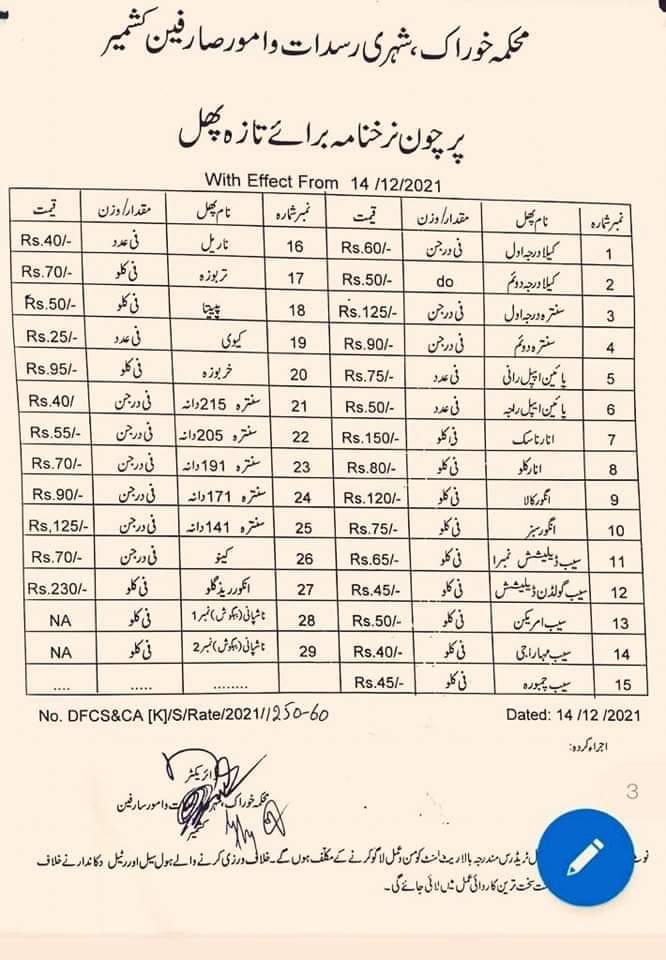 محکمہ خوراک، شہری رسدات و امور صارفین کشمیر
پرچون نرخنامہ برائے تازہ پھل
With Effect From 14 /12/2021
نمبر شمارہ نام پھل مقدار/وزن قیمت نمبر شمارہ نام پھل مقدار/وزن قیمت
1 کیلا درجہ اول فی درجن Rs.60/- 16 ناریل فی عدد Rs.40/-
2 کیلا درجہ دوئم do Rs.50/- 17 تربوزہ فی کلو Rs.70/-
3 سنترہ درجہ اول فی درجن Rs.125/- 18 پپیتا فی کلو Rs.50/-
4 سنترہ دوئم فی درجن Rs.90/- 19 کیوی فی عدد Rs.25/-
5 پائین ایپل رانی فی عدد Rs.75/- 20 خربوزہ فی کلو Rs.95/-
6 پائین ایپل راجہ فی عدد Rs.50/- 21 سنترہ 215 دانہ فی درجن Rs.40/
7 انار ناسک فی کلو Rs.150/- 22 سنترہ 205 دانہ فی درجن Rs.55/-
8 انار کلو فی کلو Rs.80/- 23 سنترہ 191 دانہ فی درجن Rs.70/-
9 انگور کالا فی کلو Rs.120/- 24 سنترہ 171 دانہ فی درجن Rs.90/-
10 انگور سبز فی کلو Rs.75/- 25 سنترہ 141 دانہ فی درجن Rs,125/-
11 سیب ڈیلیشش نمبر ا فی کلو Rs.65/- 26 کینو فی درجن Rs.70/-
12 سیب گولڈن ڈیلیشش فی کلو Rs.45/- 27 انگور ریڈ گلو فی کلو Rs.230/-
13 سیب امریکن فی کلو Rs.50/- 28 ناشپاتی (بگوش) نمبر 1 فی کلو NA
14 سیب مہاراجی فی کلو Rs.40/- 29 ناشپاتی (بگوش) نمبر 2 فی کلو NA
15 سیب چمبورہ فی کلو Rs.45/- ........ ..... ....
No. DFCS&CA [K]/S/Rate/2021//1250-60 Dated: 14 /12 /2021
اجراء کردہ:
ڈائریکٹر
محکمہ خوراک، شہری و امور صارفین
کشمیر
3
ٹریڈرس مندرجہ بالا ریٹ لسٹ کو من و عمل لاگو کرنے کے مکلف ہوں گے۔ خلاف ورزی کرنے والے ہول سیل اور رٹیل دکاندار نے خلاف
سخت ترین کاروائی عمل میں لائی جائے گی۔